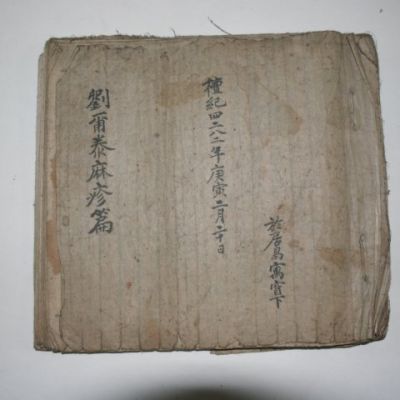 劉爾泰麻疹篇
檀紀四二八二年庚寅二月二十日
於居昌寓下